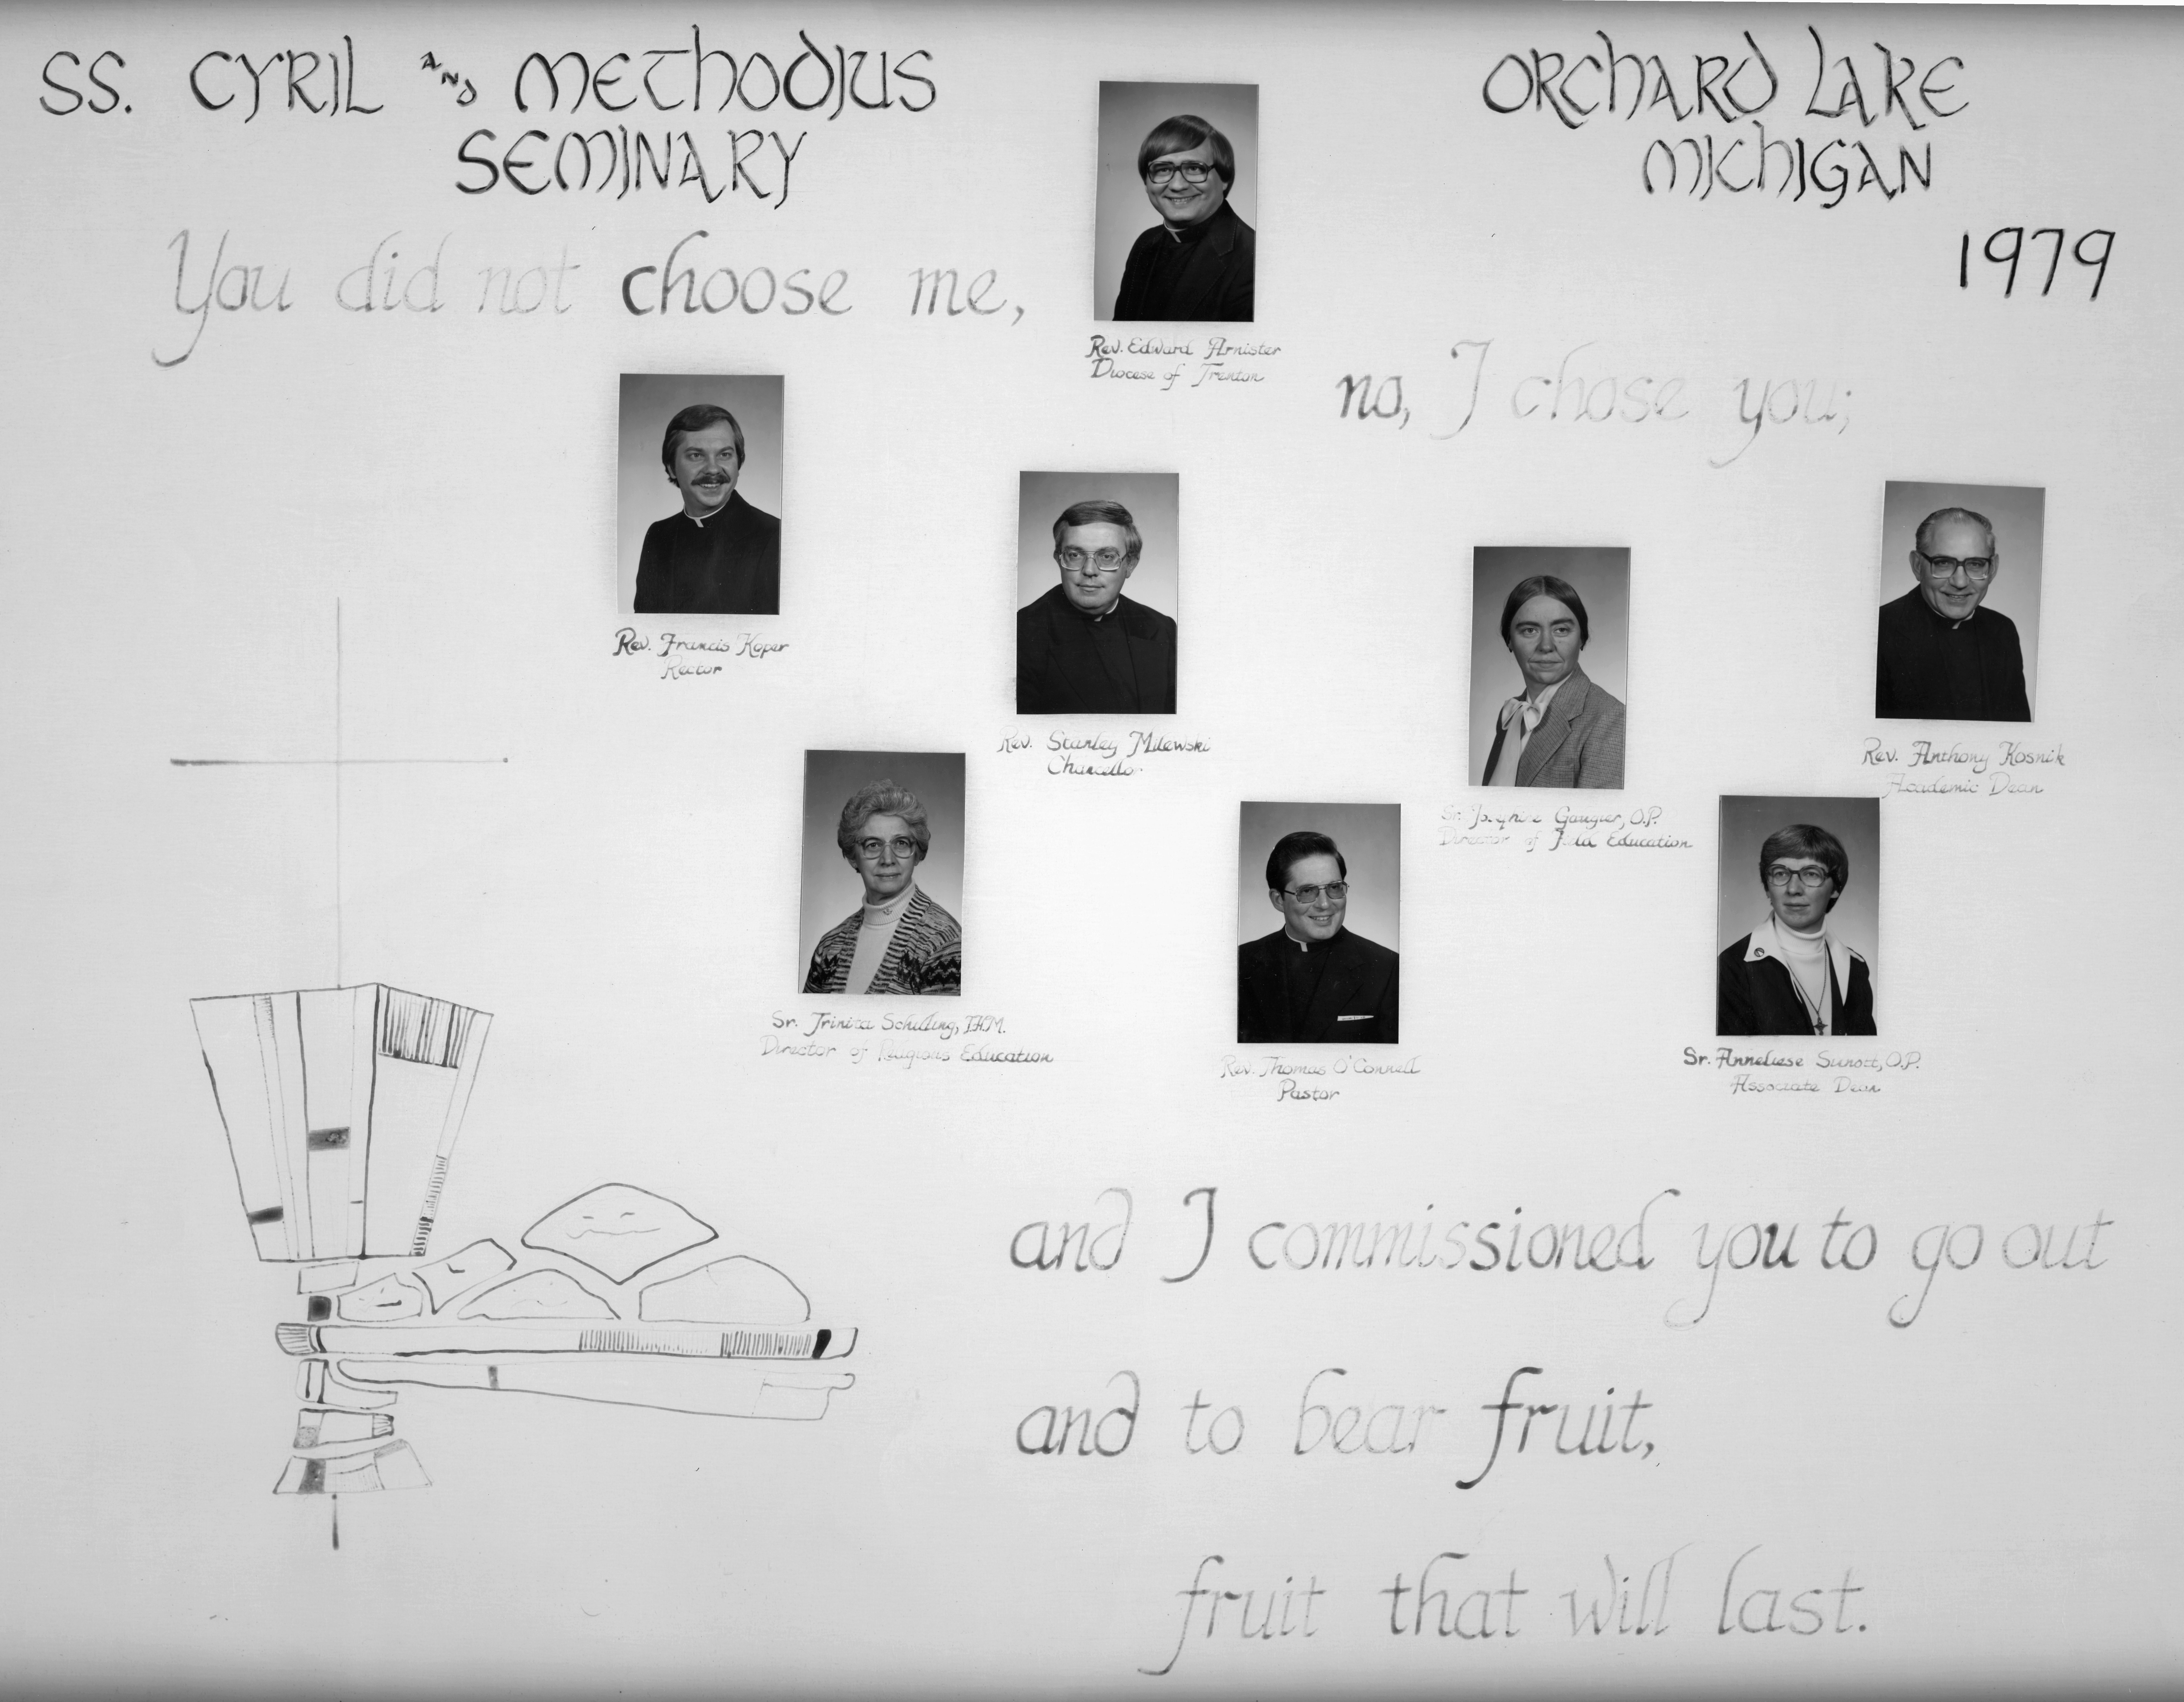 SS. CYRIL AND METHODIUS
SEMINARY
ORCHARD LAKE
MICHIGAN
1979
You did not choose me,
Rev. Edward Arnister
Diocese of Trenton
no, I chose you;
Rev. Francis Koper
Rector
Rev. Stanley Milewski
Chancellor
Sr. Josephine Gaugier, O.P.
Director of Field Education
Rev. Anthony Kosnik
Academic Dean
Sr. Trinita Schilling, I.H.M.
Director of Religious Education
Rev. Thomas O'Connell
Pastor
Sr. Anneliese Sinnott, O.P.
Associate Dean
and I commissioned you to go out
and to bear fruit,
fruit that will last.